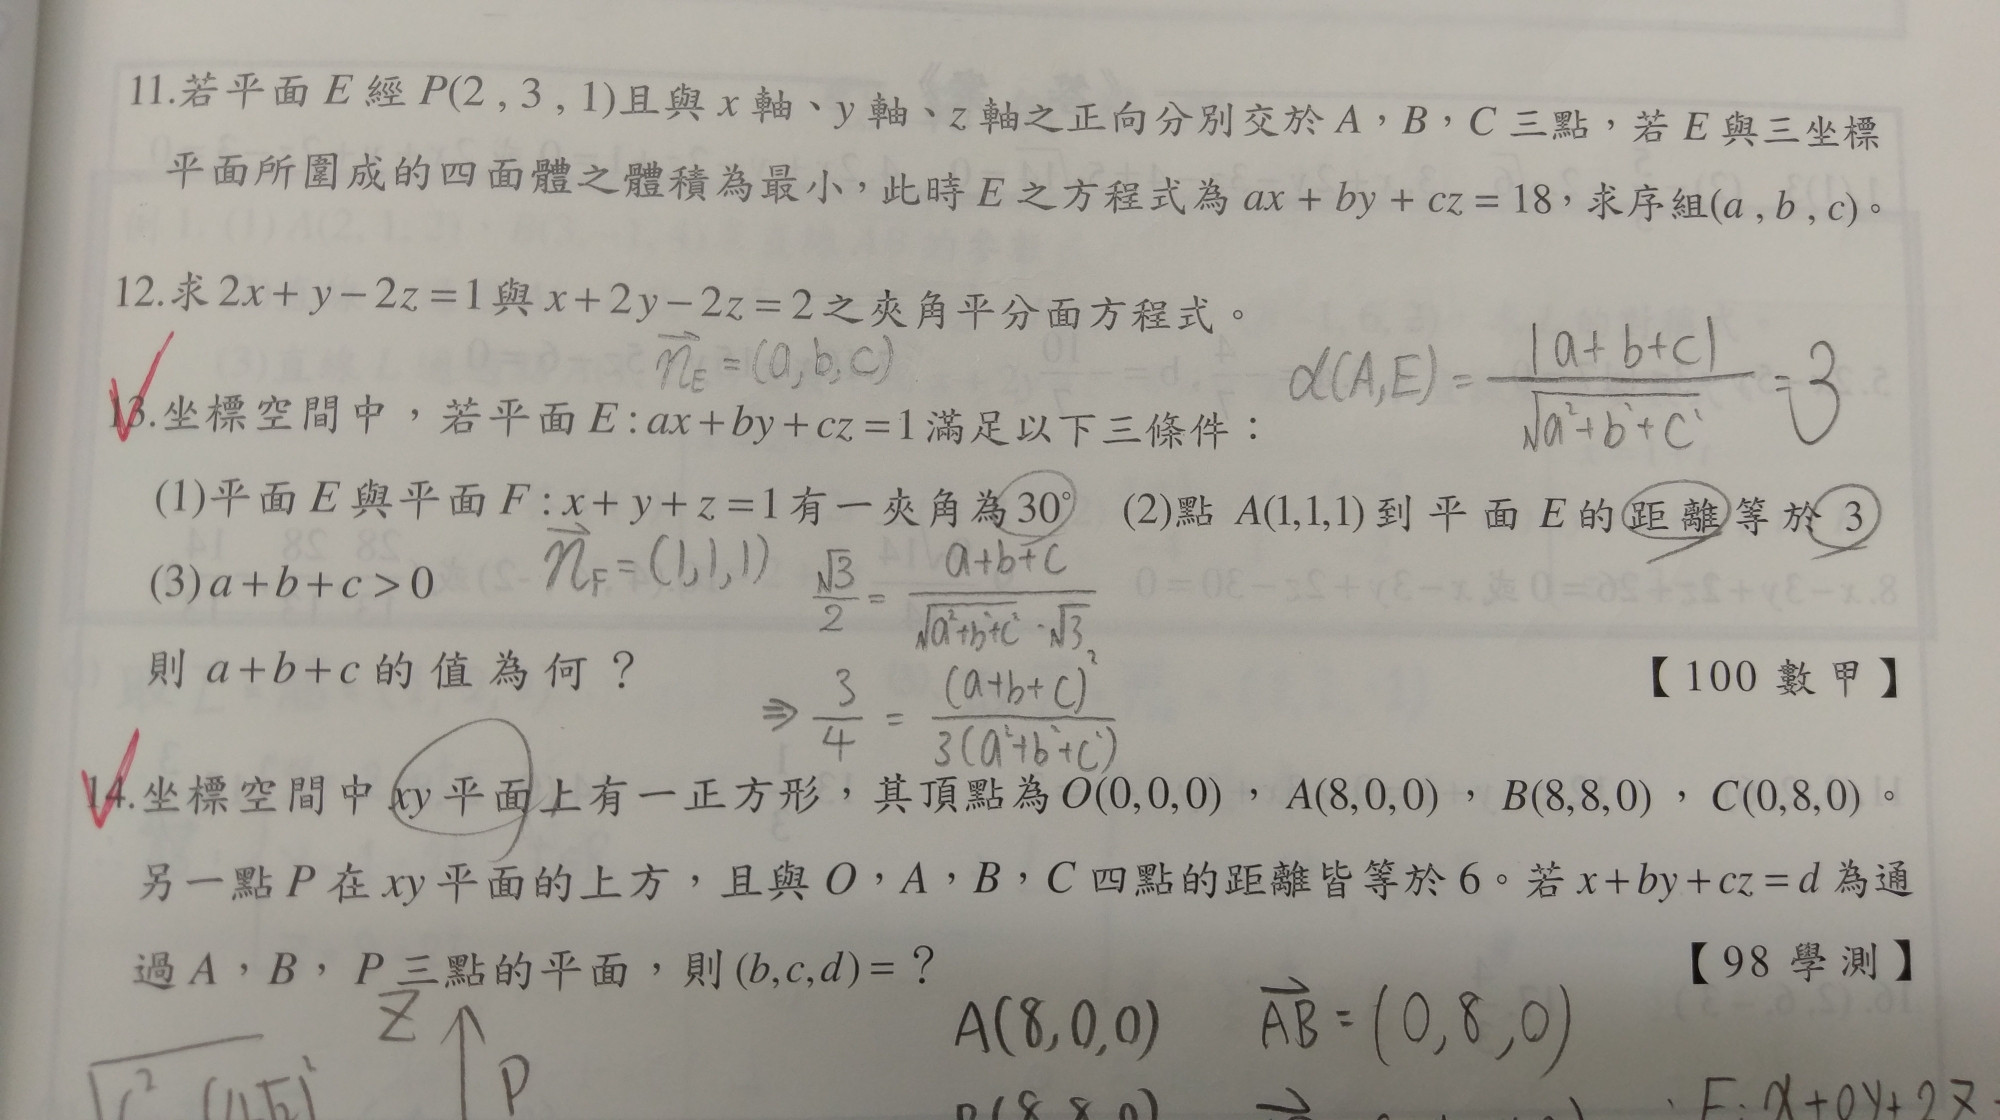 11.若平面 E 經 P(2 , 3 , 1)且與 x 軸、y 軸、z 軸之正向分別交於 A，B，C 三點，若 E 與三坐標
平面所圍成的四面體之體積為最小，此時 E 之方程式為 ax + by + cz = 18，求序組(a , b , c)。
12.求 2x + y − 2z = 1 與 x + 2y − 2z = 2 之夾角平分面方程式。
n⃗_E = (a, b, c)
d(A,E) = |a+b+c| / √(a²+b²+c²) = 3
13.坐標空間中，若平面 E : ax + by + cz = 1 滿足以下三條件：
(1)平面 E 與平面 F : x + y + z = 1 有一夾角為 30° (2)點 A(1,1,1) 到平面 E 的距離等於 3
(3) a + b + c > 0
n⃗_F = (1,1,1)
√3/2 = (a+b+c) / (√(a²+b²+c²) · √3)
則 a + b + c 的值為何？ 【100 數甲】
⇒ 3/4 = (a+b+c)² / 3(a²+b²+c²)
14.坐標空間中 xy 平面上有一正方形，其頂點為 O(0,0,0)，A(8,0,0)，B(8,8,0)，C(0,8,0)。
另一點 P 在 xy 平面的上方，且與 O，A，B，C 四點的距離皆等於 6。若 x + by + cz = d 為通
過 A，B，P 三點的平面，則 (b,c,d) = ？ 【98 學測】
Z
A(8,0,0) AB⃗ = (0,8,0)
P